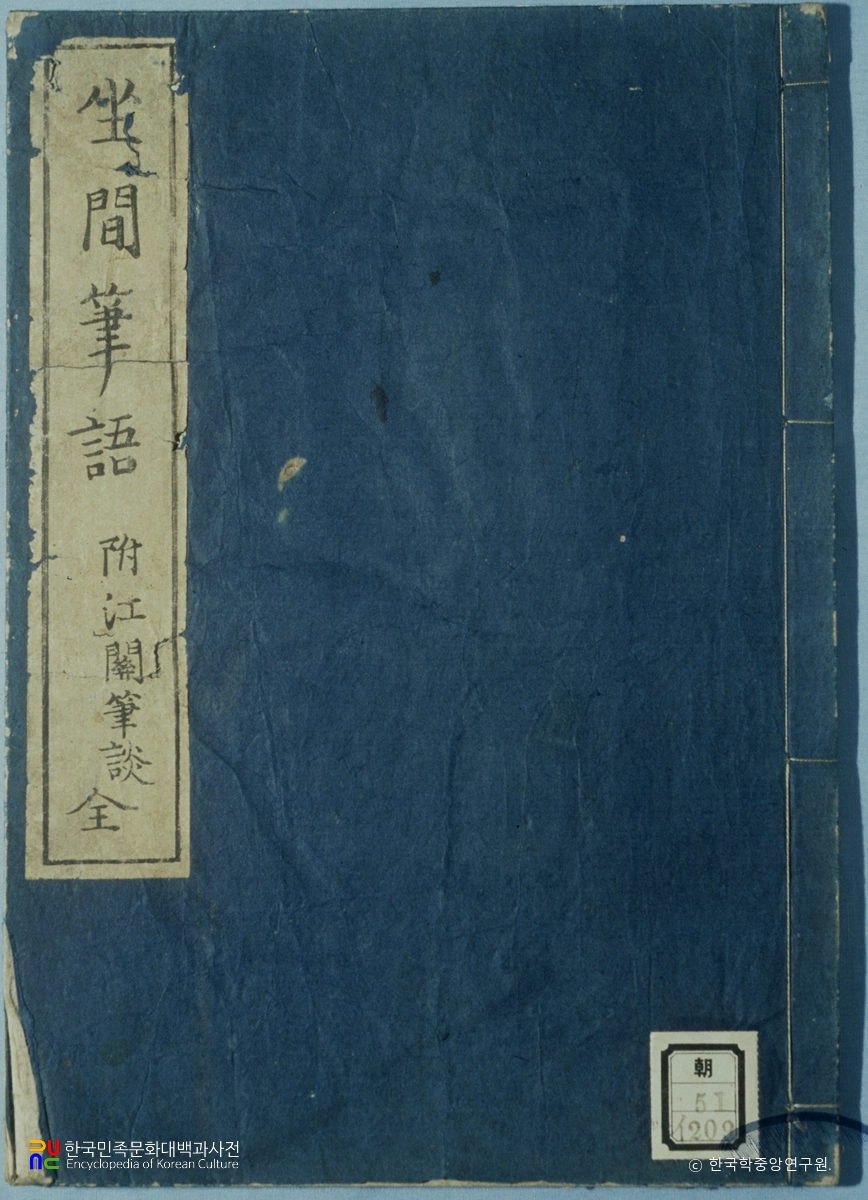 坐間筆語 附江關筆談 全
朝
51
1209
한국민족문화대백과사전
Encyclopedia of Korean Culture
© 한국학중앙연구원.